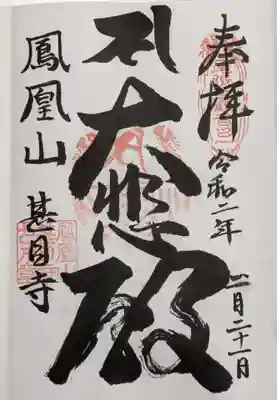 奉拝 令和二年 二月二十一日
大悲殿
鳳凰山 甚目寺